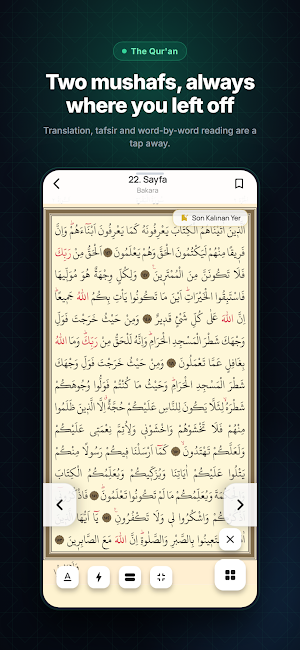 The Qur'an
Two mushafs, always
where you left off
Translation, tafsir and word-by-word reading are a
tap away.
22. Sayfa
Bakara
Son Kalınan Yer
الَّذِينَ اٰتَيْنَاهُمُ الْكِتَابَ يَعْرِفُونَهُ كَمَا يَعْرِفُونَ اَبْنَٓاءَهُمْۜ وَاِنَّ
فَرِيقًا مِنْهُمْ لَيَكْتُمُونَ الْحَقَّ وَهُمْ يَعْلَمُونَ اَلْحَقُّ مِنْ رَبِّكَ
فَلَا تَكُونَنَّ مِنَ الْمُمْتَرِينَ وَلِكُلٍّ وِجْهَةٌ هُوَ مُوَلِّيهَا
فَاسْتَبِقُوا الْخَيْرَاتِۜ اَيْنَ مَا تَكُونُوا يَأْتِ بِكُمُ اللّٰهُ جَمِيعًاۜ
اِنَّ اللّٰهَ عَلٰى كُلِّ شَيْءٍ قَدِيرٌ وَمِنْ حَيْثُ خَرَجْتَ فَوَلِّ
وَجْهَكَ شَطْرَ الْمَسْجِدِ الْحَرَامِۜ وَاِنَّهُ لَلْحَقُّ مِنْ رَبِّكَۜ وَمَا اللّٰهُ
بِغَافِلٍ عَمَّا تَعْمَلُونَ وَمِنْ حَيْثُ خَرَجْتَ فَوَلِّ وَجْهَكَ
شَطْرَ الْمَسْجِدِ الْحَرَامِۜ وَحَيْثُ مَا كُنْتُمْ فَوَلُّوا وُجُوهَكُمْ
شَطْرَهُۙ لِئَلَّا يَكُونَ لِلنَّاسِ عَلَيْكُمْ حُجَّةٌۗ اِلَّا الَّذِينَ ظَلَمُوا
مِنْهُمْ فَلَا تَخْشَوْهُمْ وَاخْشَوْنِي وَلِاُتِمَّ نِعْمَتِي عَلَيْكُمْ
وَلَعَلَّكُمْ تَهْتَدُونَ كَمَٓا اَرْسَلْنَا فِيكُمْ رَسُولًا مِنْكُمْ
يَتْلُوا عَلَيْكُمْ اٰيَاتِنَا وَيُزَكِّيكُمْ وَيُعَلِّمُكُمُ الْكِتَابَ
وَيُعَلِّمُكُمْ مَا لَمْ تَكُونُوا تَعْلَمُونَ
وَاشْكُرُوا لِي وَلَا تَكْفُرُونِ
بِالصَّبْرِ وَالصَّلٰوةِۜ اِنَّ اللّٰهَ مَعَ الصَّابِرِينَ